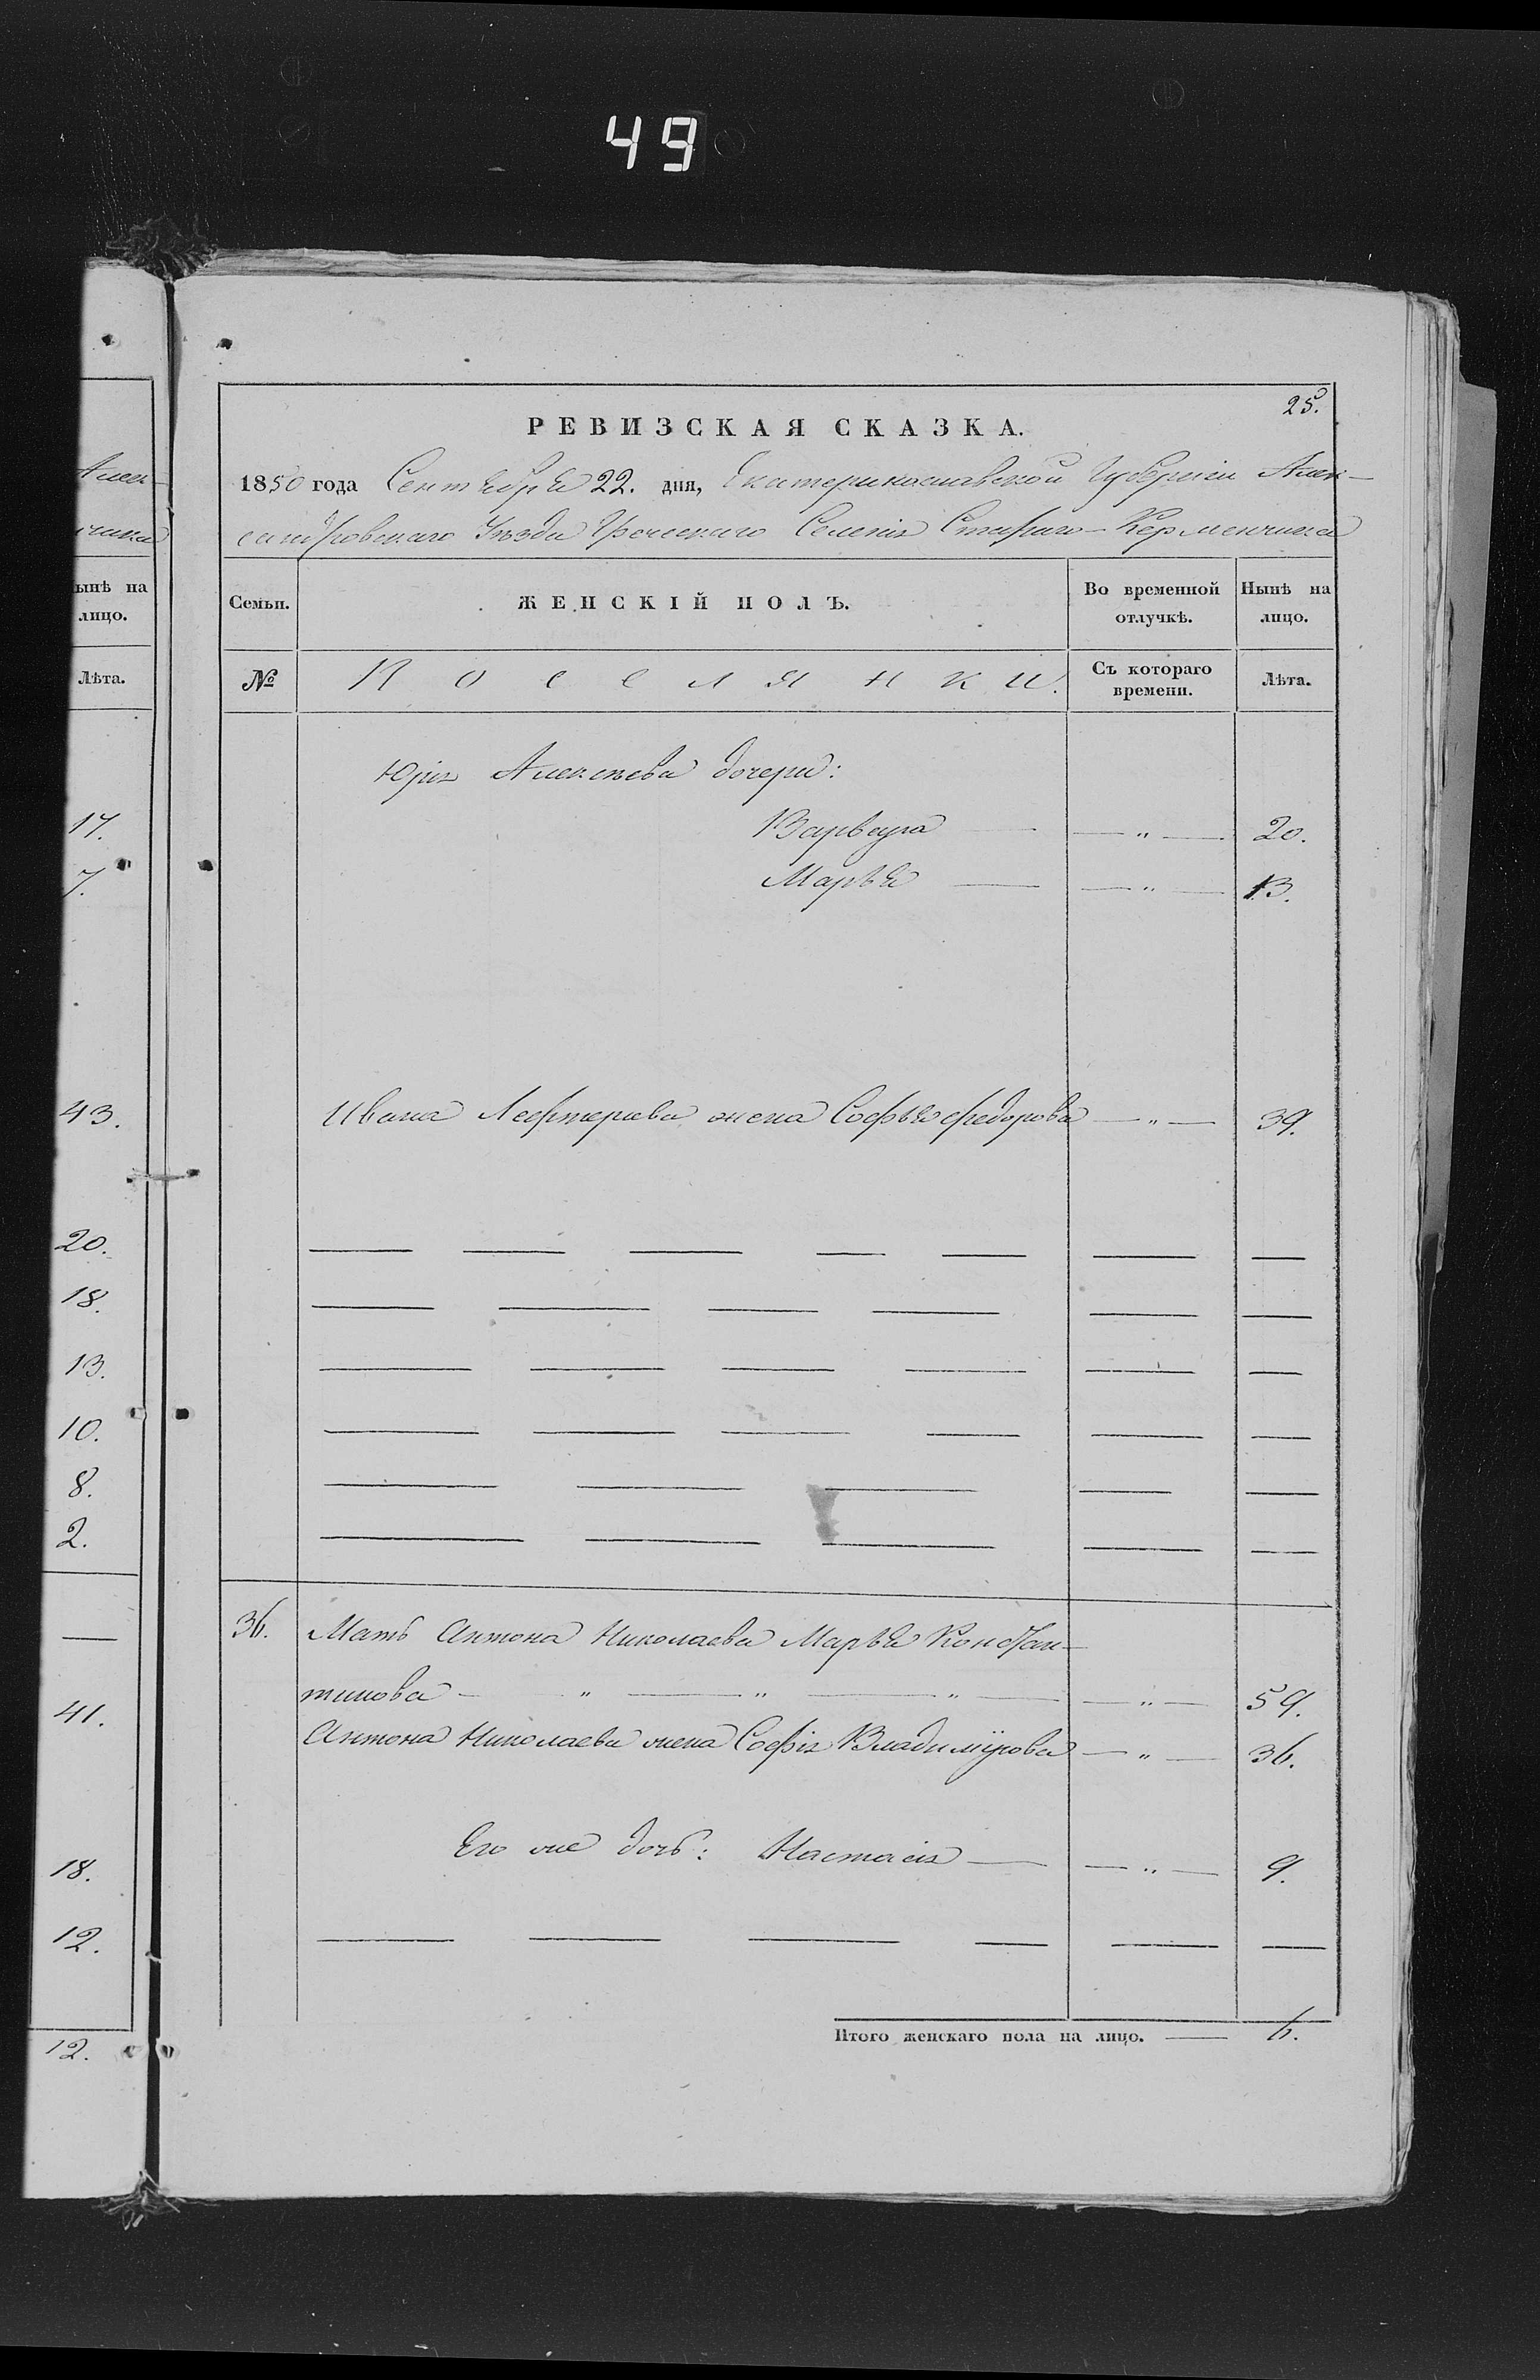 49
25.
РЕВИЗСКАЯ СКАЗКА.
1850 года Сентября 22. дня, Екатеринославской Губерніи Алек-
сандровскаго Уѣзда Греческаго Селенія Стараго-Керменчика
Семьи.
ЖЕНСКІЙ ПОЛЪ.
Во временной отлучкѣ.
Нынѣ на лицо.
№
Поселянки.
Съ котораго времени.
Лѣта.
Юрія Алексѣева дочери:
Варвара — — „ — 20.
Марья — — „ — 13.
Ивана Лефтерева жена Софья Федорова — „ — 39.
36. Мать Антона Николаева Марья Констан-
тинова — „ — „ — „ — — „ — 59.
Антона Николаева жена Софія Владимірова — „ — 36.
Его же дочь: Настасія — — „ — 9.
Итого женскаго пола на лицо. — 6.
Алек-
чика
ынѣ на
лицо.
Лѣта.
17.
7.
43.
20.
18.
13.
10.
8.
2.
—
41.
18.
12.
12.